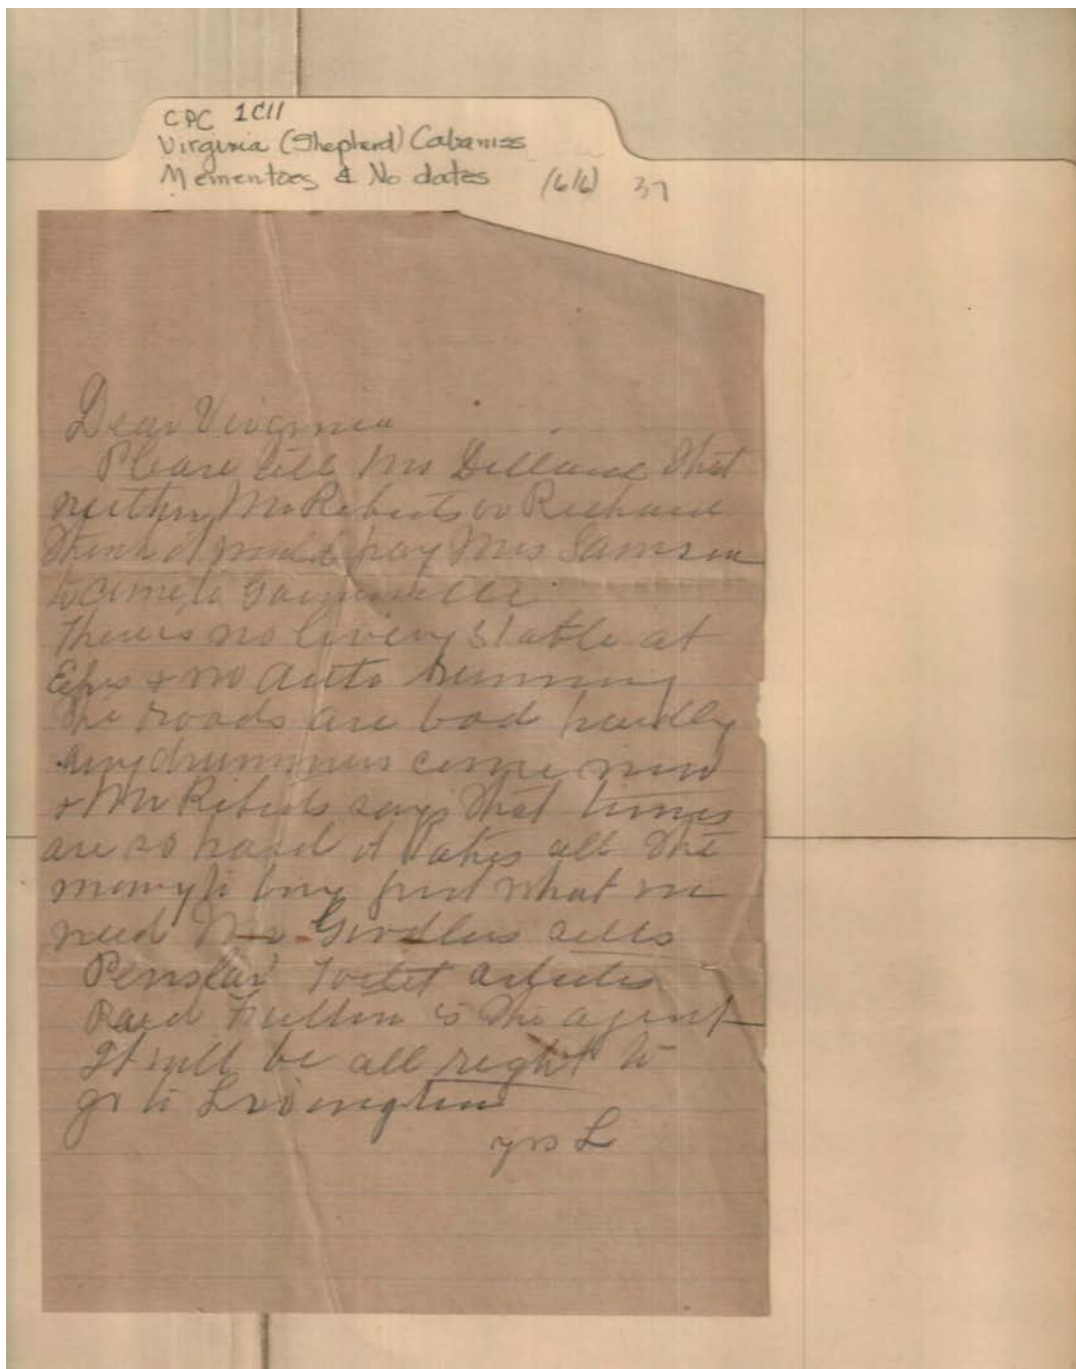 CPC 1C11
Virginia (Shepherd) Cabaniss
Mementoes & No dates (6/6) 37
Dear Virginia
Please tell Mrs that
neither Mr Roberts or Richard
think it would pay Mrs Samson
to come to Gainesville
There is no livery stable at
Epes + no auto running
The roads are bad hardly
any drummers come now
+ Mr Roberts says that times
are so hard it takes all the
money to buy just what we
need Mr sells
Penslar Toilet articles
is the agent
It will be all right to
go to Livingston
yrs L